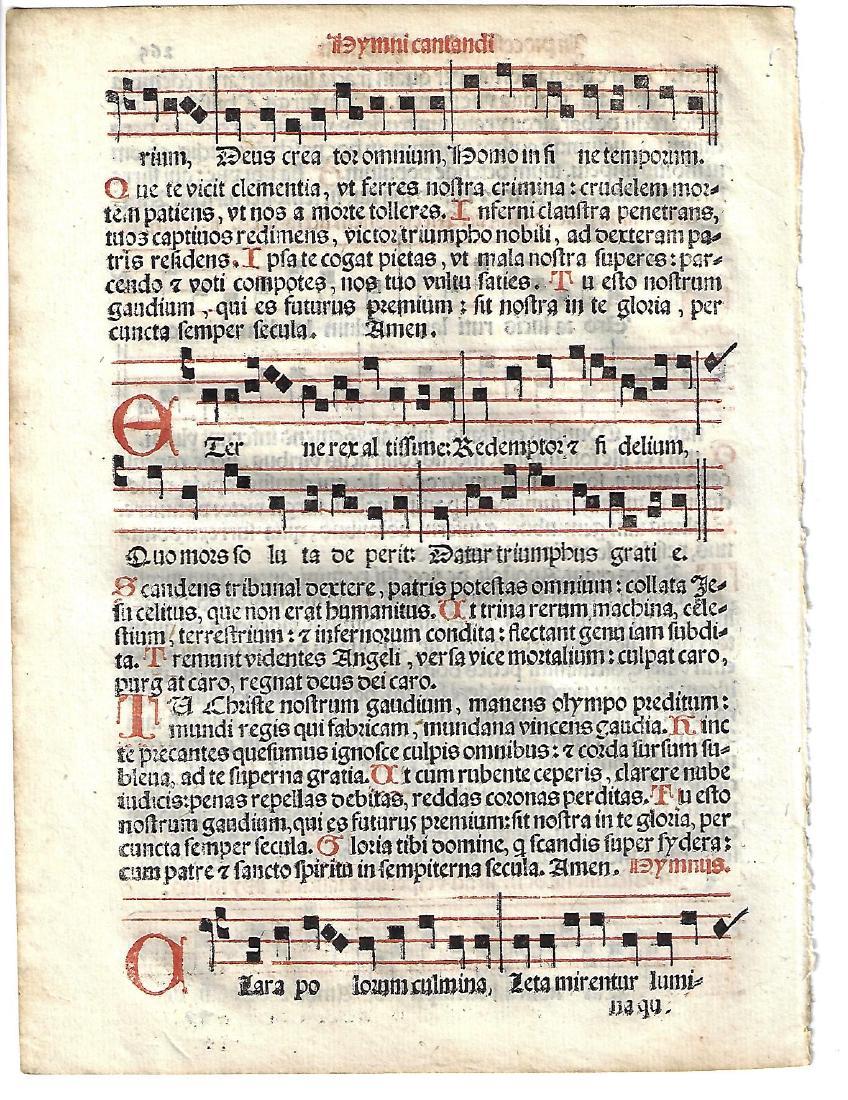 Hymni cantandi
rium, Deus crea tor omnium, Homo in fi ne temporum.
Que te vicit clementia, vt ferres nostra crimina: crudelem mor-
tem patiens, vt nos a morte tolleres. Inferni claustra penetrans,
tuos captiuos redimens, victor triumpho nobili, ad dexteram pa-
tris residens. Ipsa te cogat pietas, vt mala nostra superes: par-
cendo ⁊ voti compotes, nos tuo vultu saties. Tu esto nostrum
gaudium, qui es futurus premium: sit nostra in te gloria, per
cuncta semper secula. Amen.
ETer ne rex al tissime: Redemptor ⁊ fi delium,
Quo mors so lu ta de perit: Datur triumphus grati e.
Scandens tribunal dextere, patris potestas omnium: collata Je-
su celitus, que non erat humanitus. Ut trina rerum machina, cele-
stium, terrestrium: ⁊ infernorum condita: flectant genu iam subdi-
ta. Tremunt videntes Angeli, versa vice mortalium: culpat caro,
purgat caro, regnat deus dei caro.
TU Christe nostrum gaudium, manens olympo preditum:
mundi regis qui fabricam, mundana vincens gaudia. Hinc
te precantes quesumus ignosce culpis omnibus: ⁊ corda sursum su-
bleua, ad te superna gratia. Ut cum rubente ceperis, clarere nube
iudicis: penas repellas debitas, reddas coronas perditas. Tu esto
nostrum gaudium, qui es futurus premium: sit nostra in te gloria, per
cuncta semper secula. Gloria tibi domine, q scandis super sydera:
cum patre ⁊ sancto spiritu in sempiterna secula. Amen. Hymnus.
CLara po lorum culmina, Leta mirentur lumi-
na qu.